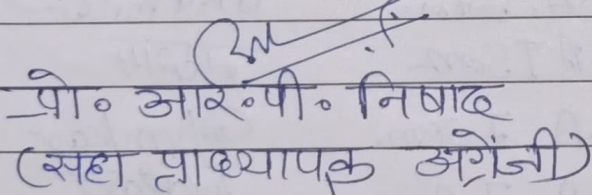 प्रो० आर०पी० निषाद
(सहा प्राध्यापक अग्रेंजी)